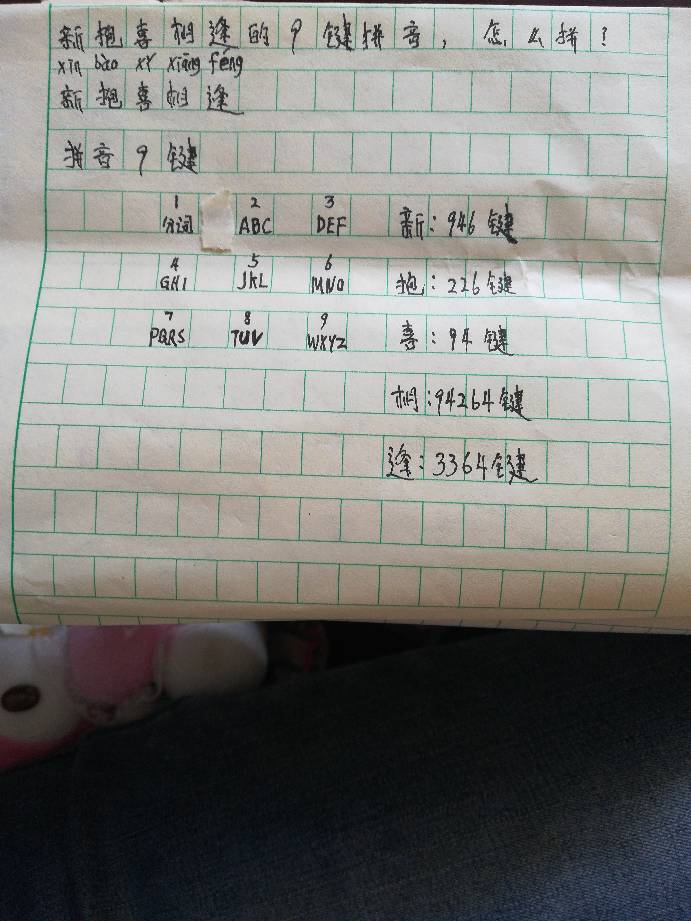 新抱喜相逢的9键拼音，怎么拼？
xīn bào xǐ xiāng féng
新抱喜相逢
拼音9键
1 2 3
分词 ABC DEF 新：946键
4 5 6
GHI JKL MNO 抱：226键
7 8 9
PQRS TUV WXYZ 喜：94键
相：94264键
逢：3364键